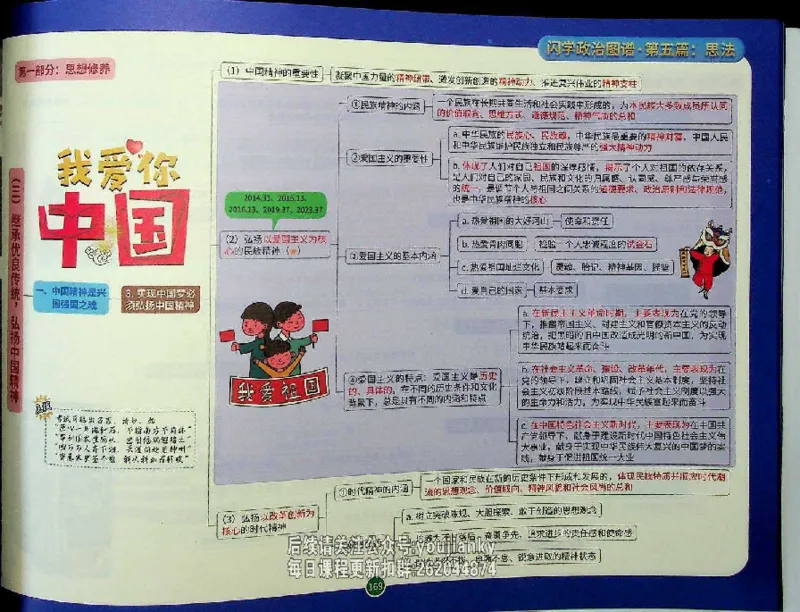 闪学政治图谱·第五篇：思法
第一部分：思想修养
（三）继承优良传统，弘扬中国精神
我爱你
中国
一、中国精神是兴
国强国之魂
3. 实现中国梦必
须弘扬中国精神
（1）中国精神的重要性
凝聚中国力量的精神纽带、激发创新创造的精神动力、推进复兴伟业的精神支柱
2014.31、2015.13、
2016.13、2019.37、2023.37
（2）弘扬以爱国主义为核
心的民族精神
①民族精神的内涵
一个民族在长期共同生活和社会实践中形成的，为本民族大多数成员所认同
的价值取向、思维方式、道德规范、精神气质的总和
②爱国主义的重要性
a. 中华民族的民族心、民族魂，中华民族最重要的精神财富，中国人民
和中华民族维护民族独立和民族尊严的强大精神动力
b. 体现了人们对自己祖国的深厚感情，揭示了个人对祖国的依存关系，
是人们对自己的家园、民族和文化的归属感、认同感、尊严感与荣誉感
的统一，是调节个人与祖国之间关系的道德要求、政治原则和法律规范，
也是中华民族精神的核心
③爱国主义的基本内涵
a. 热爱祖国的大好河山
使命和责任
b. 热爱骨肉同胞
检验一个人忠诚程度的试金石
c. 热爱祖国灿烂文化
灵魂、胎记、精神基因、
d. 爱自己的国家
基本要求
④爱国主义的特点：爱国主义是历史
的、具体的，在不同的历史条件和文化
背景下，总是具有不同的内涵和特点
a. 在新民主主义革命时期，主要表现为在党的领导
下，推翻帝国主义、封建主义和官僚资本主义的反动
统治，把黑暗的旧中国改造成光明的新中国，为实现
中华民族站起来而奋斗
b. 在社会主义革命、建设、改革年代，主要表现为在
党的领导下，建立和巩固社会主义基本制度，坚持社会
主义初级阶段基本路线，赋予社会主义制度以强大
的生命力和活力，为实现中华民族富起来而奋斗
c. 在中国特色社会主义新时代，主要表现为在中国共
产党领导下，献身于建设新时代中国特色社会主义伟
大事业，献身于实现中华民族伟大复兴的中国梦的实
践，献身于促进祖国统一大业
我爱祖国
（3）弘扬以改革创新为
核心的时代精神
①时代精神的内涵
一个国家和民族在新的历史条件下形成和发展的，体现民族特质并顺应时代潮
流的思想观念、价值取向、精神风貌和社会风尚的总和
a. 树立突破陈规、大胆探索、敢于创造的思想观念
奋勇争先、追求进步的责任感和使命感
自强不息、锐意进取的精神状态
后续请关注公众号:youjianky
每日课程更新扣群:262034874
169